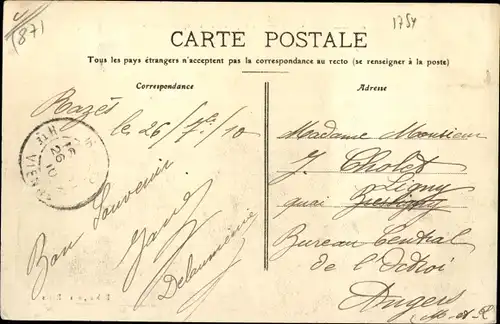 (87)
1754
CARTE POSTALE
Tous les pays étrangers n'acceptent pas la correspondance au recto (se renseigner à la poste)
Correspondance
Adresse
Razès
le 26/7/10
Bon Souvenir
Delaumenie
HTE VIENNE
26
10
Madame Monsieur
J. Cholet
Ligny
quai
Bureau Central
de l'Octroi
Angers
(M-et-L)